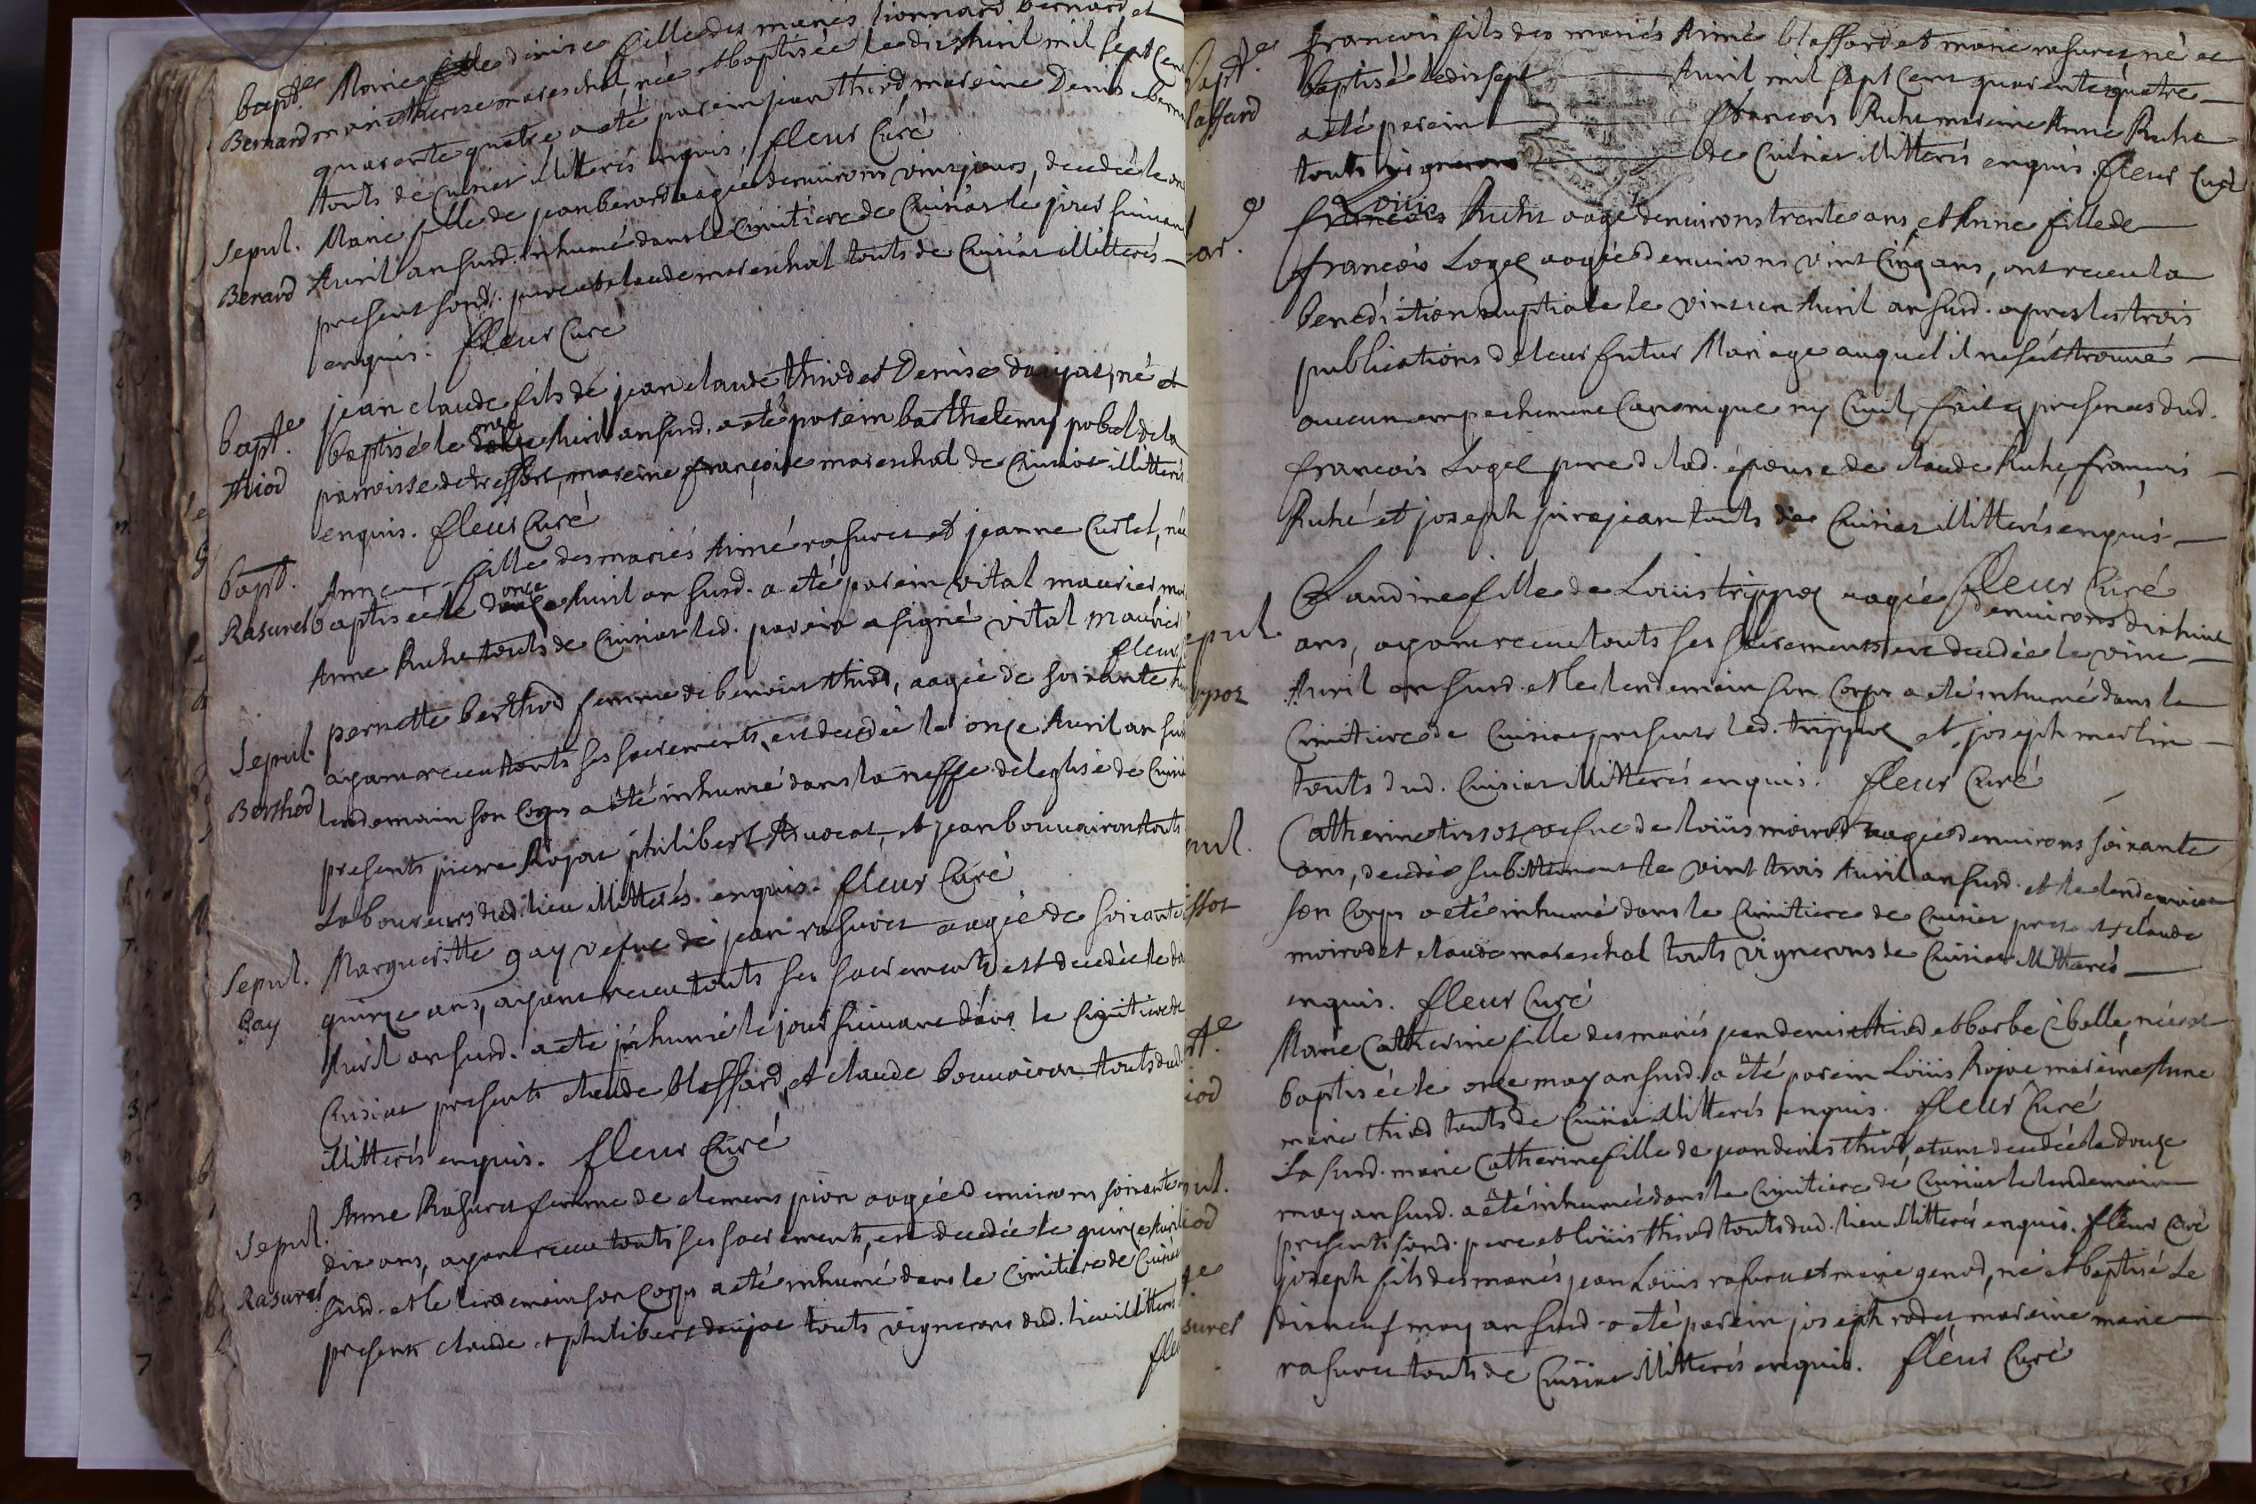 bapt.e Marie denise fille des mariés lionnard bernard et
Bernard marie therese mareschal née et baptisée le dix Avril mil sept Cen
quarante quatre a eté parein jean thiod mareine Denise berna
touts de Cuisiat illitterés enquis. fleur Curé
Sepul. Marie fille de jean berard aagée denvirons vint jours, decedée le
Berard Avril an susd. inhumé dans le Cimitiere de Cuisiat le jour suivant
present sond. pere et claude mareschal touts de Cuisiat illitterés
enquis. fleur Curé
bapt.e jean claude fils de jean claude thiod et Denise daujat, né et
baptisé le onze Avril an susd. a eté parein barthelemy pobel de la
thiod parroisse de tressort, mareine françoise mareschal de Cuisiat illitterés
enquis. fleur Curé
bapt. Anne fille des mariés Aimé rasurel et jeanne Curtet, née
Rasurel baptisée le onze Avril an susd. a eté parein vital maurier
Anne Ruhe touts de Cuisiat led. parein a signé vital maurier
fleur
Sepul. pernette berthod femme de benoist thiod, aagée de soixante
ayant receu touts ses sacrements, est decedée le onze Avril an sus
Berthod lendemain son Corps a eté inhumé dans la neffe de leglise de Cuisi
presents pierre Rojat philibert Avocat, et jean bouvairon touts
Laboureurs dud. lieu illitterés enquis. fleur Curé
Sepul. Margueritte gay vefue de jean rasurel aagée de soixante
Gay quinze ans, ayant receu touts ses sacrements est decedée le
Avril an susd. a eté inhumé le jour suivant dans le Cimitiere de
Cuisiat presents claude bleffard, et claude bouvairon touts dud
illitterés enquis. fleur Curé
Sepul. Anne Rasurel femme de clemens pion aagée denvirons soixante
dix ans, ayant receu touts ses sacrements, est decedée le quinze Avril
Rasurel susd. et le lendemain son Corps a eté inhumé dans le Cimitiere de Cuisia
presents claude et philibert daujat touts vignerons dud. lieu illitteres
fleu
Bapt.e françois fils des mariés Aimé bleffard et marie rasurel, né et
baptisé le dix sept Avril mil sept Cent quarante quatre
laffard a eté parein françois Ruhe mareine Anne Ruhe
touts vignerons de Cuisiat illitterés enquis. fleur Curé
ar.e Louis Ruhe aagé denvirons trente ans, et Anne fille de
françois Logel aagée denvirons vint Cinq ans, ont receu la
benediction nuptiale le vint un Avril an susd. apres les trois
publications de leur futur Mariage auquel il ne sest trouvé
aucun empechement Canonique ny Civil, fait es presences dud.
françois Logel pere de lad. épouse de claude Ruhe, françois
Ruhé et joseph jurajean touts de Cuisiat illitterés enquis
fleur Curé
epul Claudine fille de Louis trippoz aagée denvirons dix huit
ans, ayant receu touts ses sacrements, est decedée le vint
ppoz Avril an susd. et le lendemain son Corps a eté inhumé dans le
Cimitiere de Cuisiat presents led. trippoz et joseph merlin
touts dud. Cuisiat illitterés enquis. fleur Curé
pul. Catherine tissot vefue de loüis moirod aagée denvirons soixante
ans, decedée subittement le vint trois Avril an susd. et le lendemain
ssot son Corps a eté inhumé dans le Cimitiere de Cuisiat presents claude
moirod et claude mareschal touts vignerons de Cuisiat illitterés
enquis. fleur Curé
t.e Marie Catherine fille des mariés jean denis thiod et barbe Cibelle, née et
baptisée le onze may an susd. a eté parein Loüis Rojat mareine Anne
iod marie thiod touts de Cuisiat illitterés enquis. fleur Curé
La susd. marie Catherine fille de jean denis thiod, etant decedée le douze
ul. may an susd. a eté inhumée dans le Cimitiere de Cuisiat le lendemain
iod presents sond. pere et loüis thiod touts dud. lieu illitterés enquis. fleur Curé
t.e joseph fils des mariés jean Loüis rasurel et marie genod, né et baptisé le
dix neuf may an susd. a eté parein joseph rodet mareine marie
surel rasurel touts de Cuisiat illitterés enquis. fleur Curé